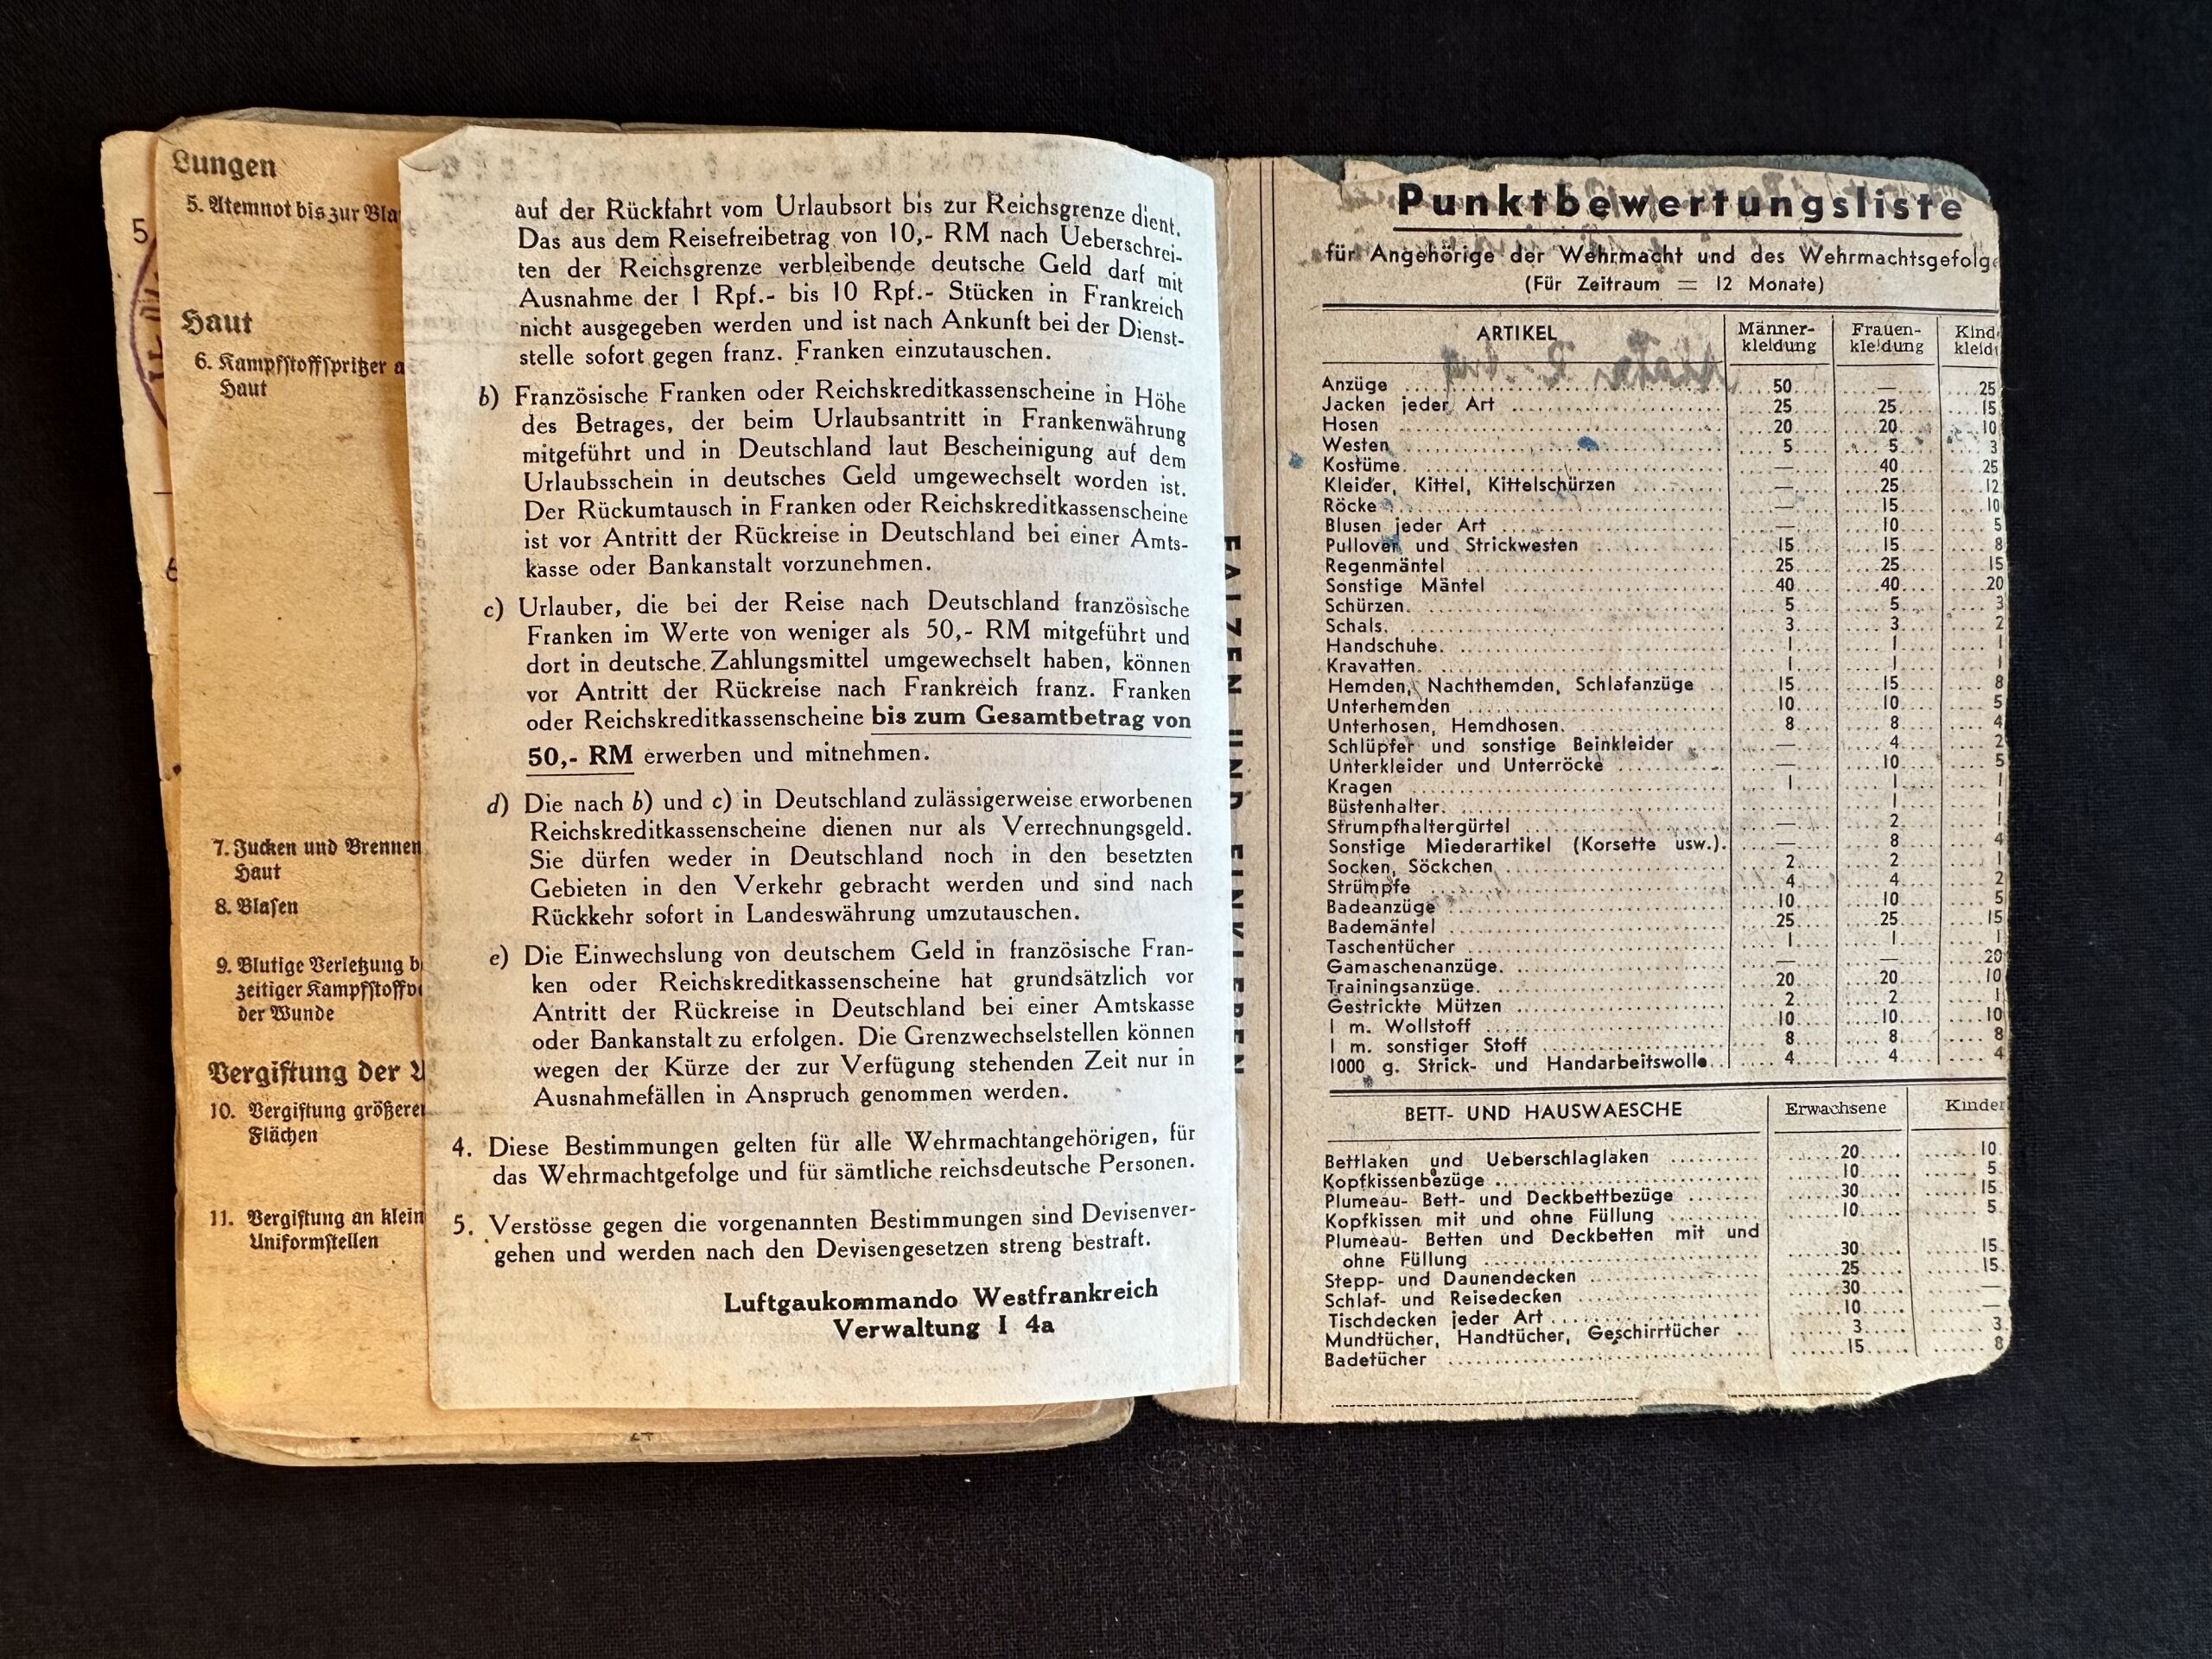 5
6
Lungen
5. Atemnot bis zur
Haut
6. Kampfstoffspritzer
Haut
7. Jucken und Brennen
Haut
8. Blasen
9. Blutige Verletzung
zeitiger
der Wunde
Vergiftung der
10. Vergiftung
Flächen
11. Vergiftung an
Uniformstellen
24
auf der Rückfahrt vom Urlaubsort bis zur Reichsgrenze dient.
Das aus dem Reisefreibetrag von 10,- RM nach Ueberschrei-
ten der Reichsgrenze verbleibende deutsche Geld darf mit
Ausnahme der 1 Rpf.- bis 10 Rpf.- Stücken in Frankreich
nicht ausgegeben werden und ist nach Ankunft bei der Dienst-
stelle sofort gegen franz. Franken einzutauschen.
b) Französische Franken oder Reichskreditkassenscheine in Höhe
des Betrages, der beim Urlaubsantritt in Frankenwährung
mitgeführt und in Deutschland laut Bescheinigung auf dem
Urlaubsschein in deutsches Geld umgewechselt worden ist.
Der Rückumtausch in Franken oder Reichskreditkassenscheine
ist vor Antritt der Rückreise in Deutschland bei einer Amts-
kasse oder Bankanstalt vorzunehmen.
c) Urlauber, die bei der Reise nach Deutschland französische
Franken im Werte von weniger als 50,- RM mitgeführt und
dort in deutsche Zahlungsmittel umgewechselt haben, können
vor Antritt der Rückreise nach Frankreich franz. Franken
oder Reichskreditkassenscheine bis zum Gesamtbetrag von
50,- RM erwerben und mitnehmen.
d) Die nach b) und c) in Deutschland zulässigerweise erworbenen
Reichskreditkassenscheine dienen nur als Verrechnungsgeld.
Sie dürfen weder in Deutschland noch in den besetzten
Gebieten in den Verkehr gebracht werden und sind nach
Rückkehr sofort in Landeswährung umzutauschen.
e) Die Einwechslung von deutschem Geld in französische Fran-
ken oder Reichskreditkassenscheine hat grundsätzlich vor
Antritt der Rückreise in Deutschland bei einer Amtskasse
oder Bankanstalt zu erfolgen. Die Grenzwechselstellen können
wegen der Kürze der zur Verfügung stehenden Zeit nur in
Ausnahmefällen in Anspruch genommen werden.
4. Diese Bestimmungen gelten für alle Wehrmachtangehörigen, für
das Wehrmachtgefolge und für sämtliche reichsdeutsche Personen.
5. Verstösse gegen die vorgenannten Bestimmungen sind Devisenver-
gehen und werden nach den Devisengesetzen streng bestraft.
Luftgaukommando Westfrankreich
Verwaltung I 4a
FALZEN UND EINKLEBEN
Punktbewertungsliste
für Angehörige der Wehrmacht und des Wehrmachtsgefolge
(Für Zeitraum = 12 Monate)
ARTIKEL Männer- Frauen- Kind
kleidung kleidung kleid
Anzüge 50 — 25
Jacken jeder Art 25 25 15
Hosen 20 20 10
Westen 5 5 3
Kostüme — 40 25
Kleider, Kittel, Kittelschürzen — 25 12
Röcke — 15 10
Blusen jeder Art — 10 5
Pullover und Strickwesten 15 15 8
Regenmäntel 25 25 15
Sonstige Mäntel 40 40 20
Schürzen 5 5 3
Schals 3 3 2
Handschuhe 1 1 1
Kravatten 1 1 1
Hemden, Nachthemden, Schlafanzüge 15 15 8
Unterhemden 10 10 5
Unterhosen, Hemdhosen 8 8 4
Schlüpfer und sonstige Beinkleider — 4 2
Unterkleider und Unterröcke — 10 5
Kragen 1 1 1
Büstenhalter 1 1
Strumpfhaltergürtel — 2 1
Sonstige Miederartikel (Korsette usw.) — 8 4
Socken, Söckchen 2 2 1
Strümpfe 4 4 2
Badeanzüge 10 10 5
Bademäntel 25 25 15
Taschentücher 1 1 1
Gamaschenanzüge — — 20
Trainingsanzüge 20 20 10
Gestrickte Mützen 2 2 1
1 m. Wollstoff 10 10 10
1 m. sonstiger Stoff 8 8 8
1000 g. Strick- und Handarbeitswolle 4 4 4
BETT- UND HAUSWAESCHE Erwachsene Kinder
Bettlaken und Ueberschlaglaken 20 10
Kopfkissenbezüge 10 5
Plumeau- Bett- und Deckbettbezüge 30 15
Kopfkissen mit und ohne Füllung 10 5
Plumeau- Betten und Deckbetten mit und
ohne Füllung 30 15
Stepp- und Daunendecken 25 15
Schlaf- und Reisedecken 30 —
Tischdecken jeder Art 10 —
Mundtücher, Handtücher, Geschirrtücher 3 3
Badetücher 15 8